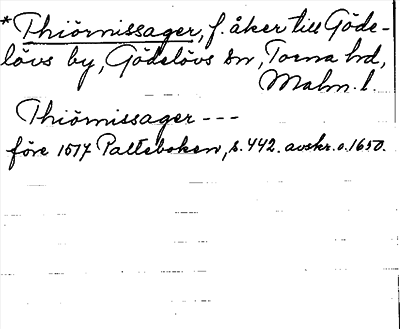 *Thiörnissager, f. åker till Göde-
lövs by, Gödelövs sn, Torna hd,
Malm. l.
Thiörnissager ---
före 1517 Palteboken, s. 442. avskr. o. 1650.